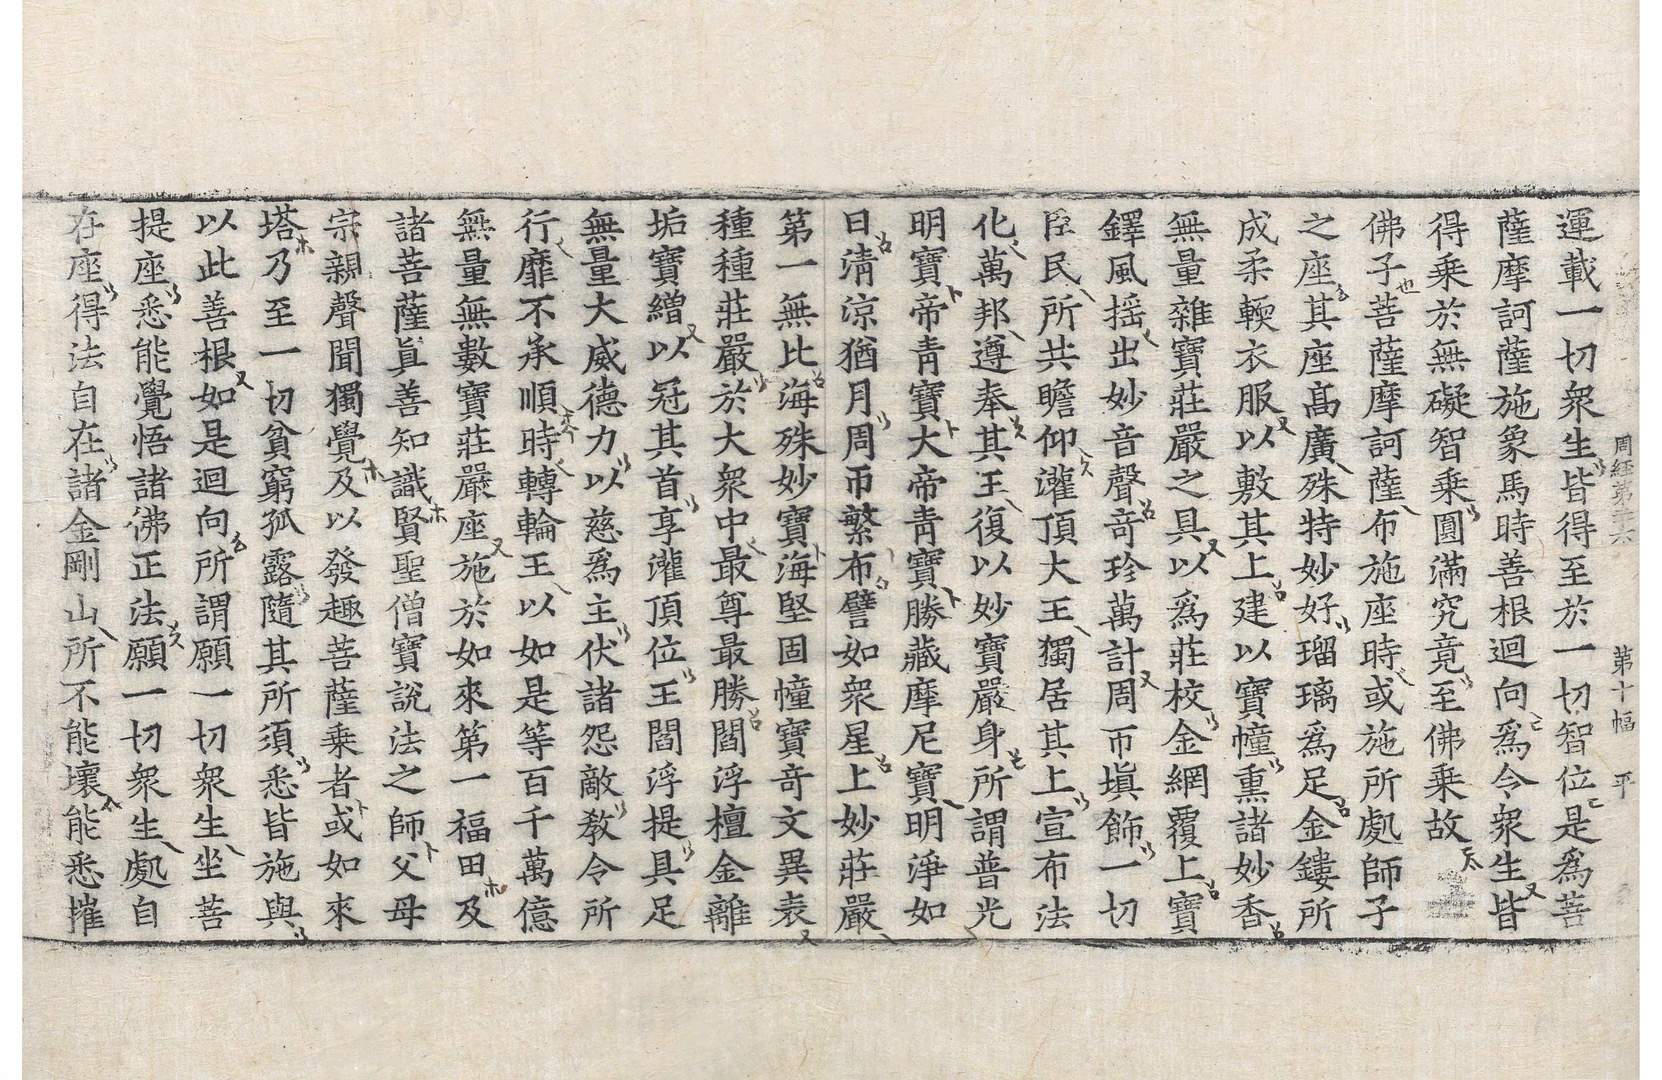 周經第二十六 第十幅 平
運載一切衆生皆得至於一切智位是爲菩
薩摩訶薩施象馬時善根迴向爲令衆生皆
得乗於無礙智乗圓滿究竟至佛乗故
佛子菩薩摩訶薩布施座時或施所處師子
之座其座高廣殊特妙好瑠璃爲足金鏤所
成柔輭衣服以敷其上建以寶幢熏諸妙香
無量雜寶莊嚴之具以爲莊校金網覆上寶
鐸風揺出妙音聲竒珍萬計周帀塡飾一切
臣民所共瞻仰灌頂大王獨居其上宣布法
化萬邦遵奉其王復以妙寶嚴身所謂普光
明寶帝青寶大帝青寶勝藏摩尼寶明淨如
日清涼猶月周帀繁布譬如衆星上妙莊嚴
第一無比海殊妙寶海堅固幢寶竒文異表
種種莊嚴於大衆中最尊最勝閻浮檀金離
垢寶繒以冠其首享灌頂位王閻浮提具足
無量大威德力以慈爲主伏諸怨敵敎令所
行靡不承順時轉輪王以如是等百千萬億
無量無數寶莊嚴座施於如來第一福田及
諸菩薩眞善知識賢聖僧寶說法之師父母
宗親聲聞獨覺及以發趣菩薩乗者或如來
塔乃至一切貧窮孤露隨其所須悉皆施與
以此善根如是迴向所謂願一切衆生坐菩
提座悉能覺悟諸佛正法願一切衆生處自
在座得法自在諸金剛山所不能壞能悉摧